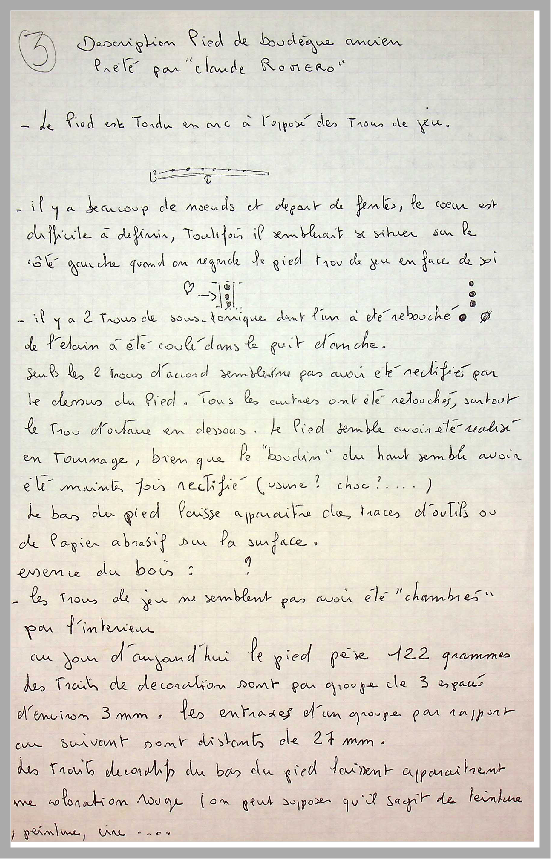 3 Description Pied de boudègue ancien
Prété par "Claude ROMERO"
- Le Pied est Tordu en arc à l'opposé des Trous de jeu.
- il y a beaucoup de noeuds et depart de fentes, le coeur est
difficile à definir, Toutefois il semblerait se situer sur le
côté gauche quand on regarde le pied trou de jeu en face de soi
- il y a 2 Trous de sous-tonique dont l'un à été rebouché
de l'etain à été coulé dans le puit d'anche.
seuls les 2 trous d'accord semblent ne pas avoir eté rectifiés par
le dessus du Pied. Tous les autres ont été retouchés, surtout
le Trou d'octave en dessous. Le Pied semble avoir été réalisé
en Tournage, bien que le "boudin" du haut semble avoir
été maintes fois rectifié (usure? choc?....)
Le bas du pied laisse apparaitre des traces d'outils ou
de Papier abrasif sur la surface.
essence du bois : ?
- les Trous de jeu ne semblent pas avoir été "chambrés"
par l'interieur
au jour d'aujourd'hui le pied pèse 122 grammes
Les Traits de decoration sont par groupe de 3 espacés
d'environ 3 mm. les entraxes d'un groupe par rapport
au suivant sont distants de 27 mm.
Les Traits decoratifs du bas du pied laissent apparaitrent
une coloration rouge (on peut supposer qu'il sagit de teinture
, peinture, cire ....